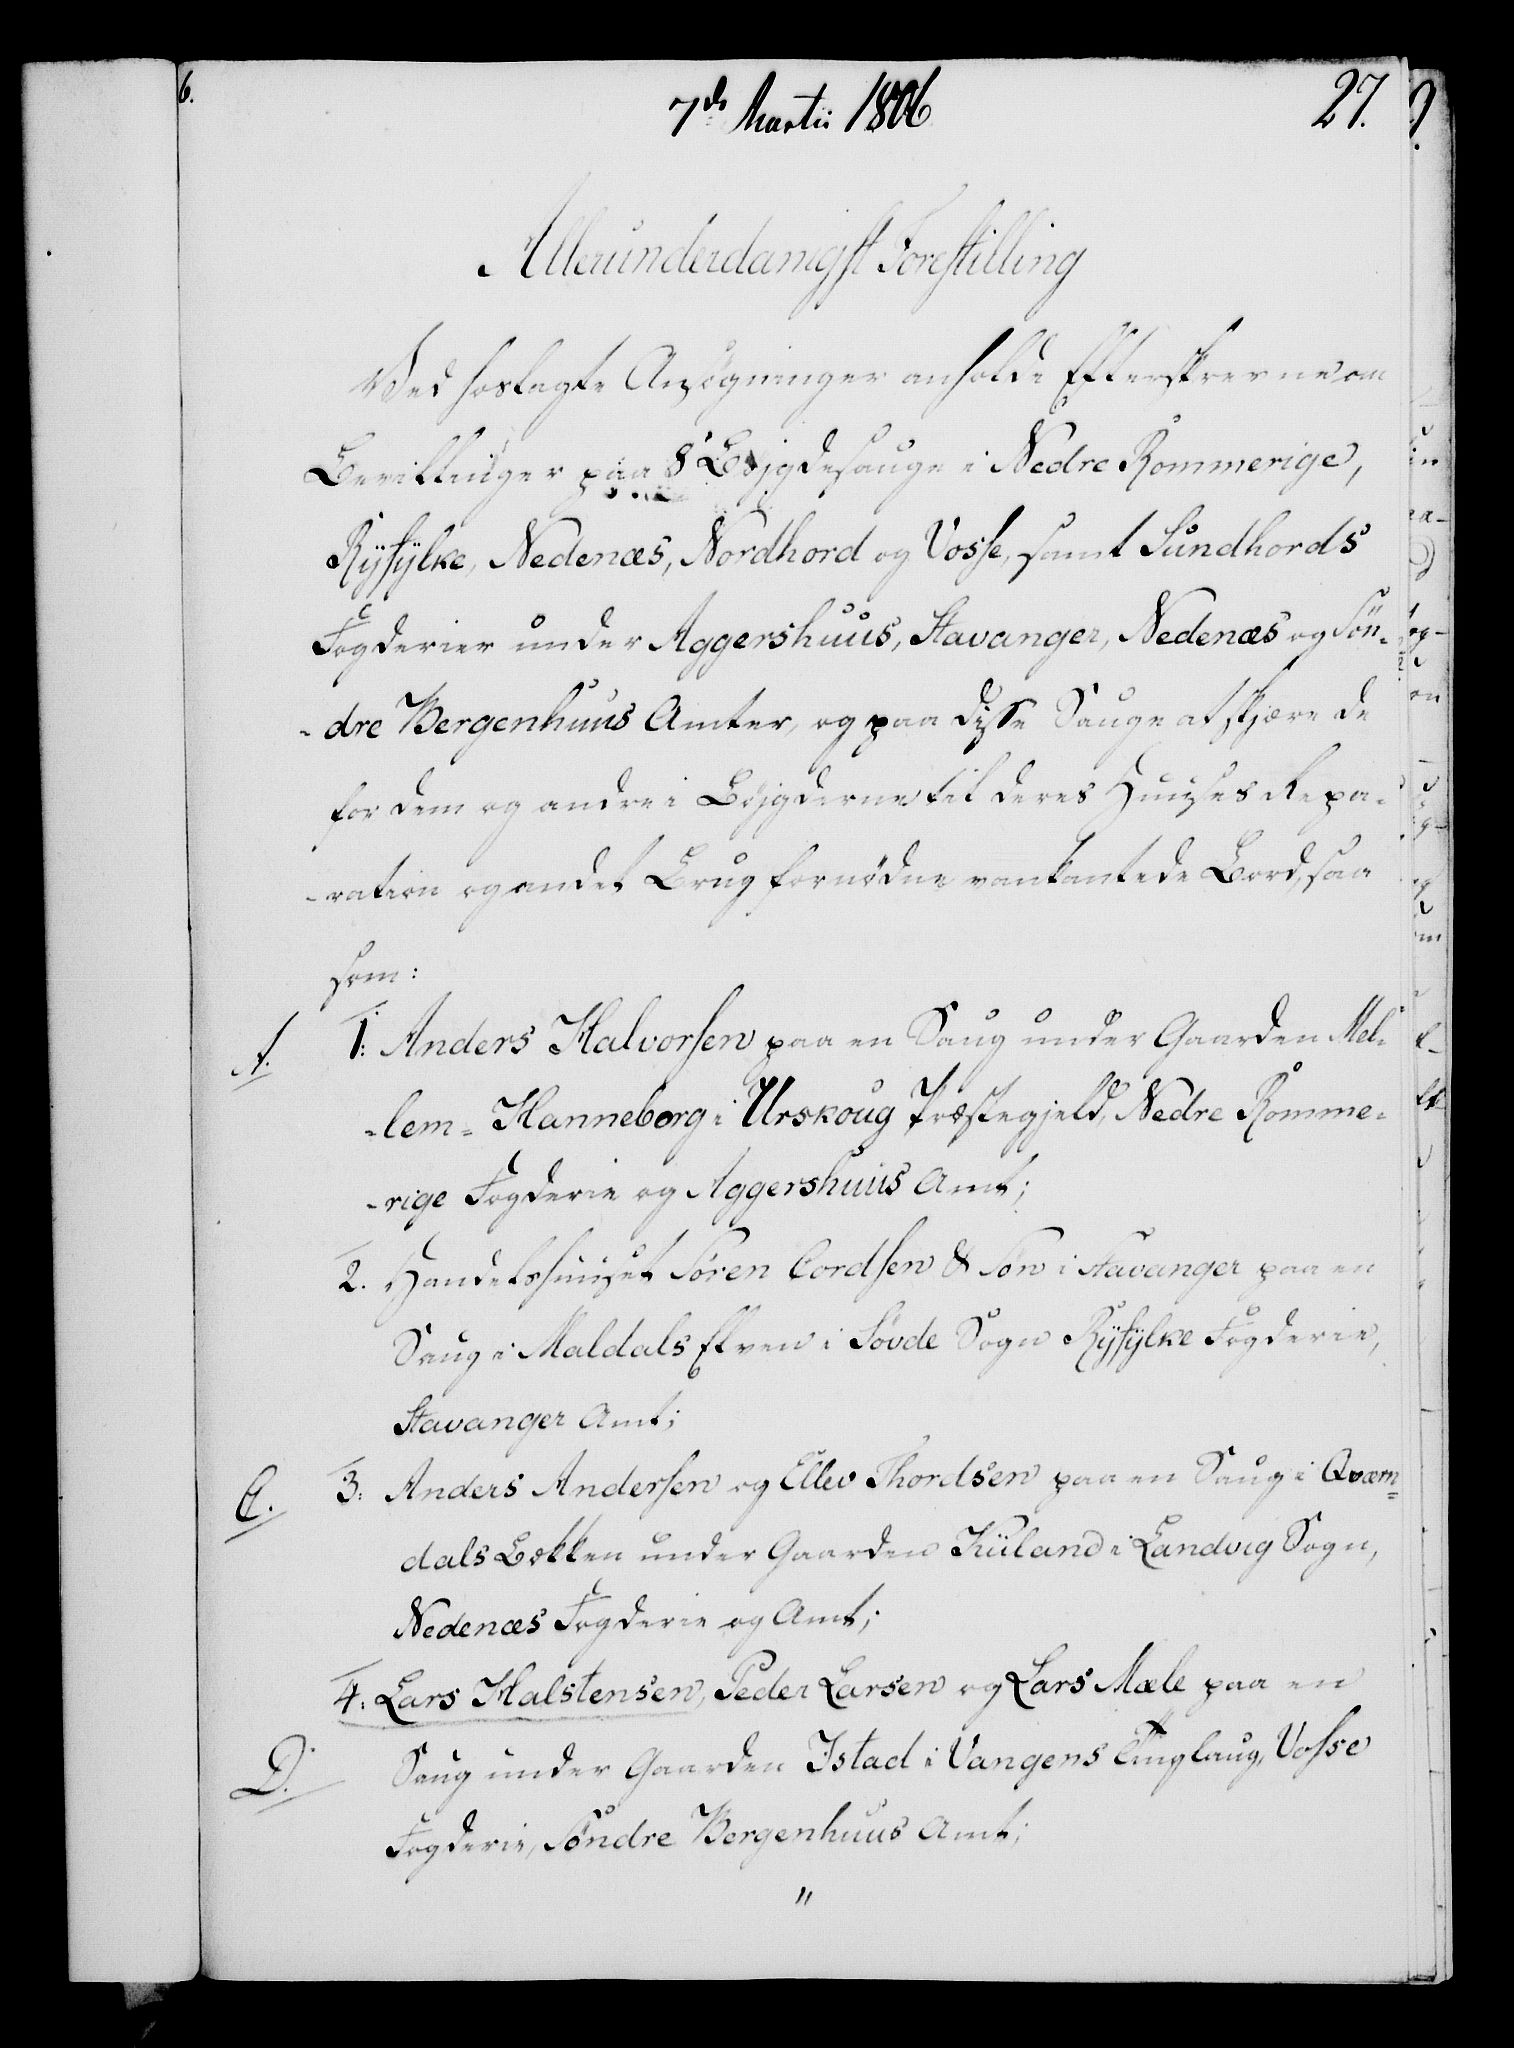 6.
7de Martii 1806
27.
Allerunderdanigst Forestilling
Ved hoslagte Ansøgninger anholde Efterskrevne om
Bevillinger paa 8 Böjgdesauge i Nedre Rommerige,
Rÿfÿlke, Nedenæs, Nordhord og Vosse, samt Sundhords
Fogderier under Aggershuus, Stavanger, Nedenæs og Sön-
-dre Bergenhuus Amter, og paa disse Sauge at skjære de
for dem og andre i Böjgderne til deres Huuses Repa-
-ration og andet Brug fornödne vankantede Bord, saa
som:
A. 1: Anders Halvorsen paa en Saug under Gaarden Mel-
-lem- Hanneborg i Urskoug Præstegjeld, Nedre Romme-
-rige Fogderie og Aggershuus Amt;
2. Handelshuuset Sören Cordsen & Sön i Stavanger paa en
Saug i Maldals Elven i Sövde Sogn Rÿfÿlke Fogderie,
Stavanger Amt;
C. 3: Anders Andersen og Ellev Thordsen paa en Saug i Qværn-
dals Bekken under Gaarden Kuland i Landvig Sogn,
Nedenæs Fogderie og Amt;
4: Lars Halstensen, Peder Larsen og Lars Mæle paa en
D. Saug under Gaarden Istad i Vangens Tinglaug, Vosse
Fogderie, Söndre Bergenhuus Amt;
"